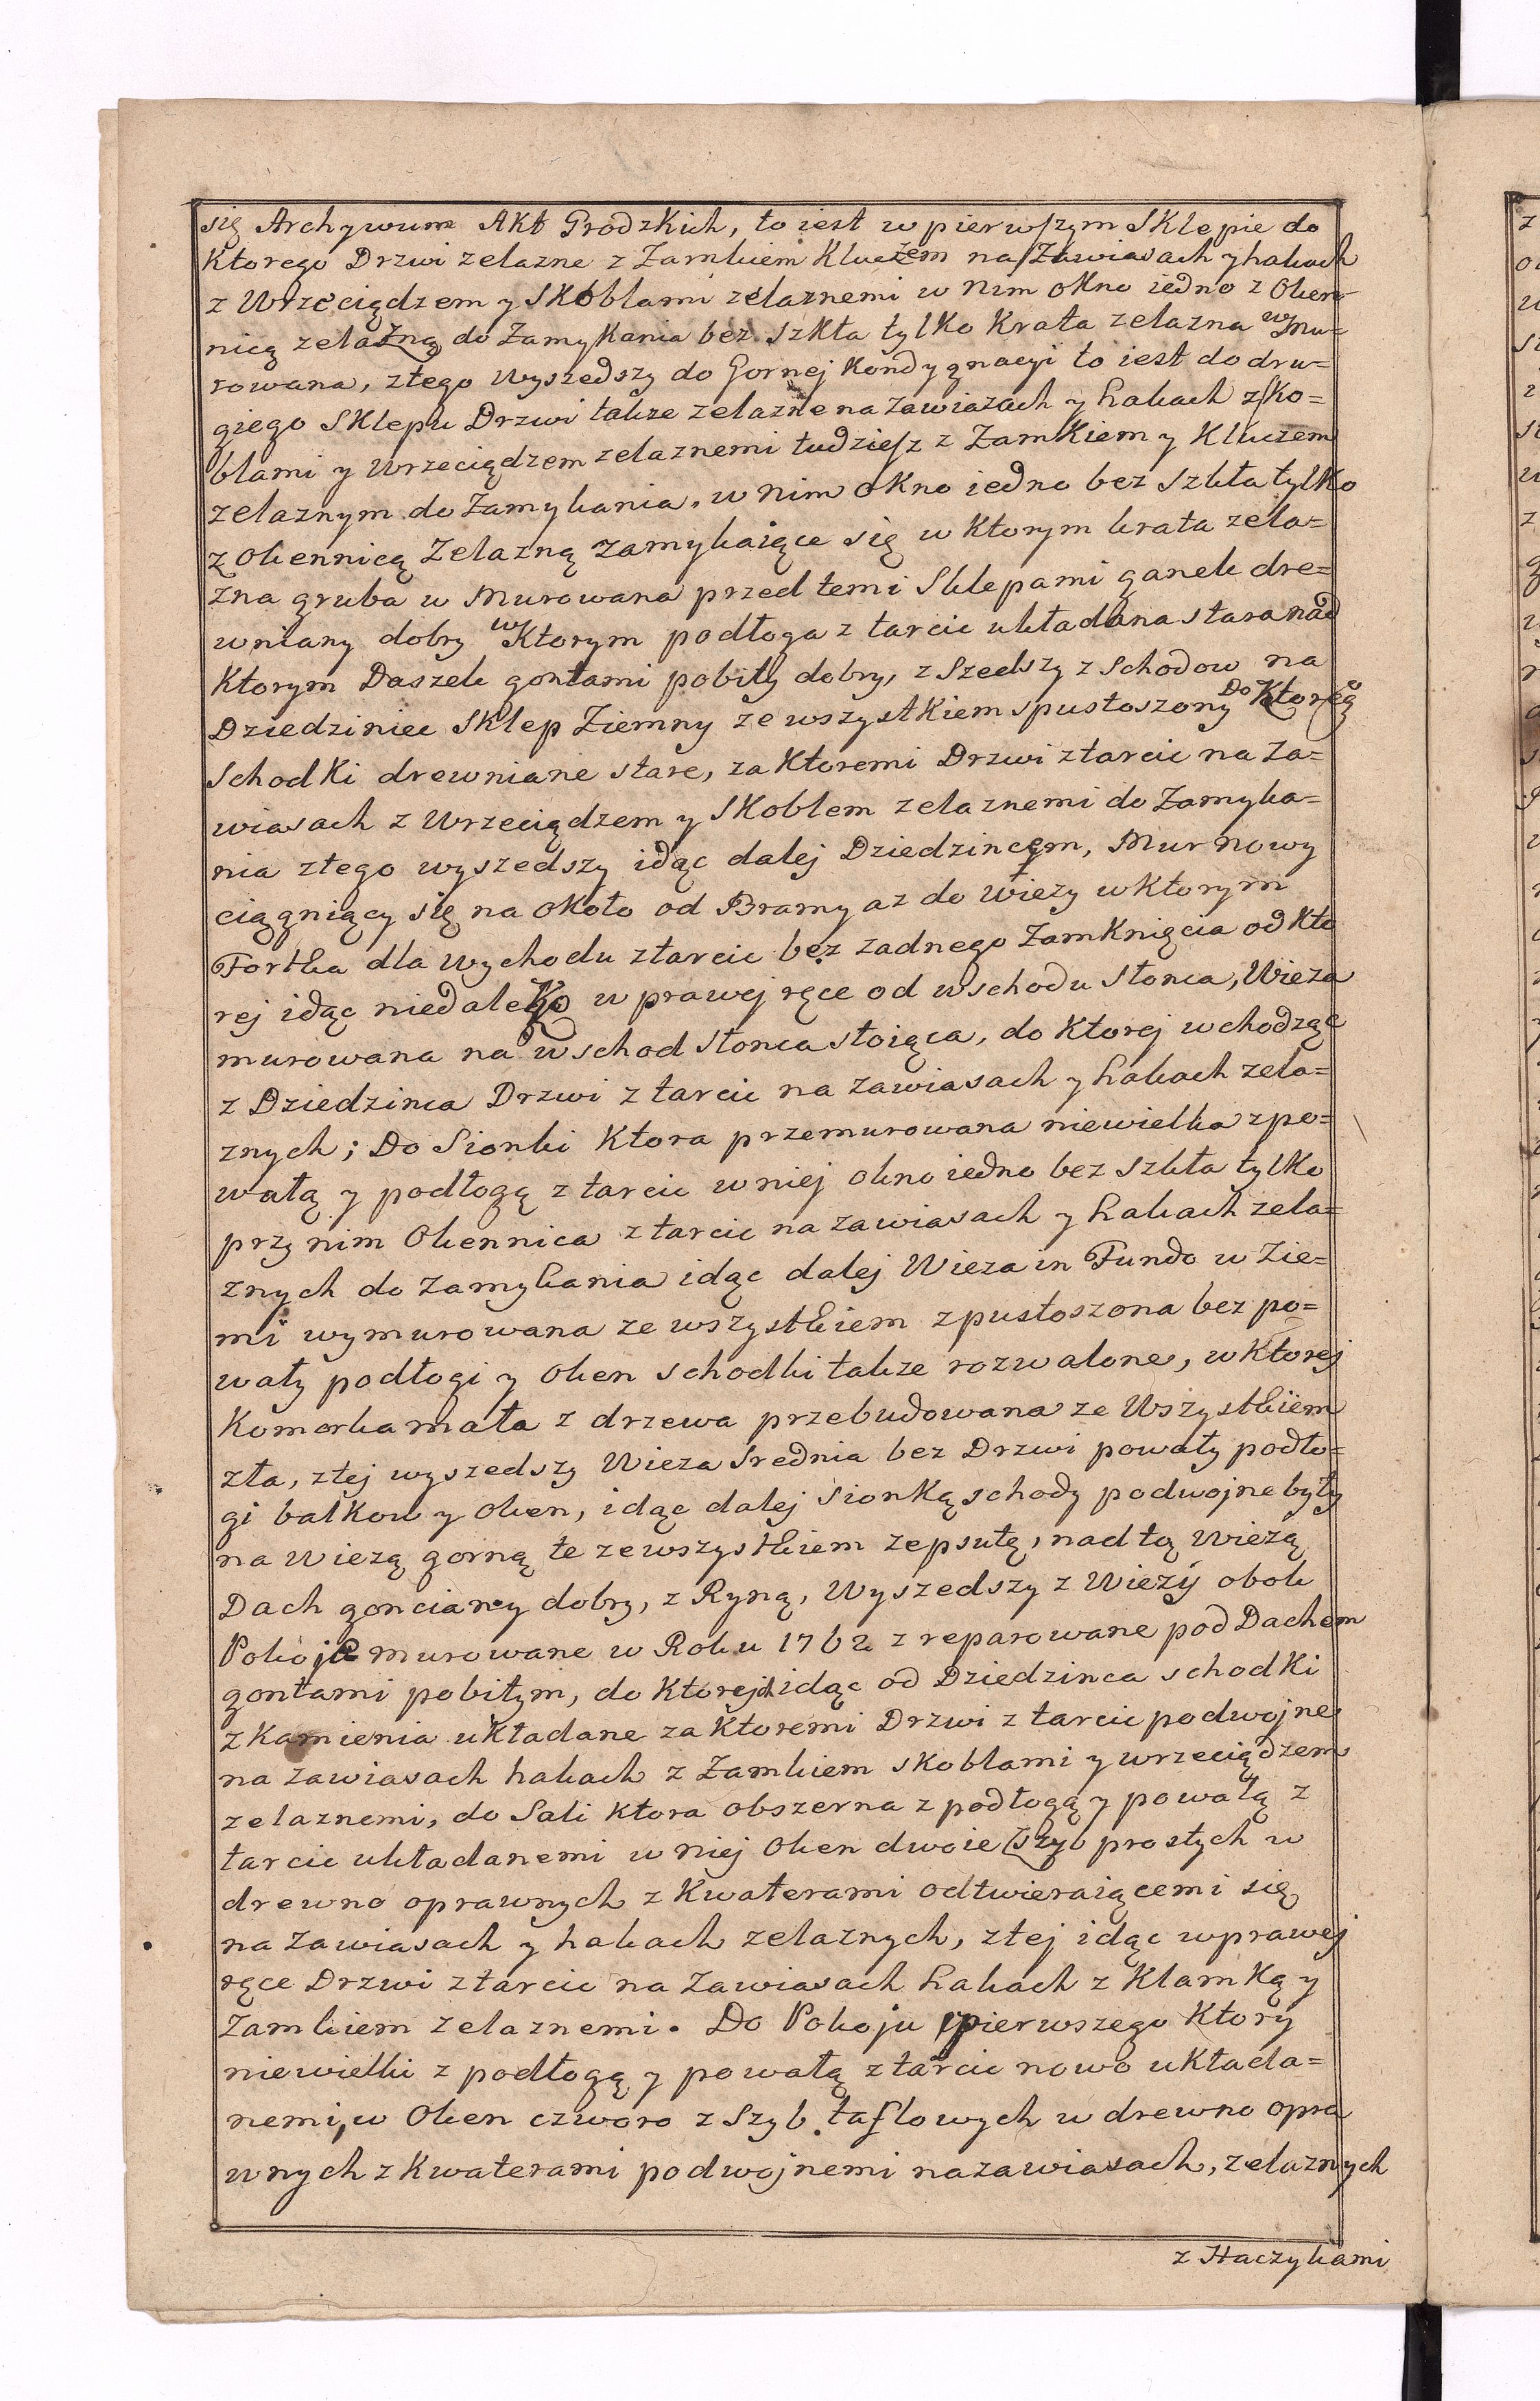 się Archywum Akt Grodzkich, to iest w pierwszym Sklepie do
Ktorego Drzwi zelazne z Zamkiem Kluczem na Zawiasach y hakach
z Wrzeciądzem y Skoblami zelaznemi w Nim okno iedno z Oken-
nicą zelazną do Zamykania bez szkła tylko Krata zelazna w mu=
rowana, z tego wyszedszy do Gornej Kondygnacyi to iest do dru=
giego Sklepu Drzwi takze zelazne na zawiazach y hakach z Sko=
blami y Wrzeciądzem zelaznemi tudziesz z Zamkiem y Kluczem
zelaznym do Zamykania, w Nim okno iedno bez szkła tylko
z Okennicą Zelazną zamykaiące się w Ktorym krata zela=
zna gruba w Murowana przed temi Sklepami ganek dre=
wniany dobry w Ktorym podłoga z tarcic układana stara nad
Ktorym Daszek gontami pobity dobry, z Szedszy z Schodow na
Dziedziniec Sklep Ziemny ze wszystkiem spustoszony Do Ktorego
Schodki drewniane stare, za Ktoremi Drzwi z tarcic na Za=
wiasach z Wrzeciądzem y Skoblem zelaznemi do Zamyka=
nia z tego wyszedszy idąc dalej Dziedzincem, Mur nowy
ciągniący się na około od Bramy az do wiezy w Ktorym
Fortka dla Wychodu z tarcic bez zadnego Zamknięcia od Kto
rej idąc niedaleko w prawej ręce od wschodu słonca, Wieza
murowana na wschod słonca stoiąca, do Ktorej wchodząc
z Dziedzinca Drzwi z tarcic na zawiasach y hakach zela=
znych; Do Sionki Ktora przemurowana niewielka z po=
wałą y podłogą z tarcic w niej okno iedno bez szkła tylko
przy nim Okennica z tarcic na zawiasach y hakach zela=
znych do zamykania idąc dalej Wieza in Fundo w Zie=
mi wymurowana ze wszystkiem zpustoszona bez po=
wały podłogi y Oken schodki takze rozwalone, w Ktorej
Komorka mała z drzewa przebudowana ze Wszystkiem
zła, z tej wyszedszy Wieza średnia bez Drzwi powały podło=
gi balkow y Oken, idąc dalej sionką schody podwojne były
na wiezą gorną te ze wszystkiem zepsute, nad tą wiezą
Dach gonciany dobry, z Ryną, Wyszedszy z Wiezy obok
Pokoje murowane w Roku 1762 zreparowane pod Dachem
gontami pobitym, do Ktorych idąc od Dziedzinca schodki
z Kamienia układane za Ktoremi Drzwi z tarcic podwojne
na zawiasach hakach z Zamkiem skoblami y wrzeciądzem
zelaznemi, do Sali Ktora obszerna z podłogą y powałą z
tarcic układanemi w niej Oken dwoie Szyb prostych w
drewno oprawnych z Kwaterami odtwieraiącemi się
na zawiasach y hakach zelaznych, z tej idąc w prawej
ręce Drzwi z tarcic na Zawiasach hakach z Klamką y
Zamkiem zelaznemi. Do Pokoju pierwszego Ktory
niewielki z podłogą y powałą z tarcic nowo układa=
nemi, w Oken czworo z Szyb taflowych w drewno opra
wnych z Kwaterami podwojnemi na zawiasach, zelaznych
z Haczykami